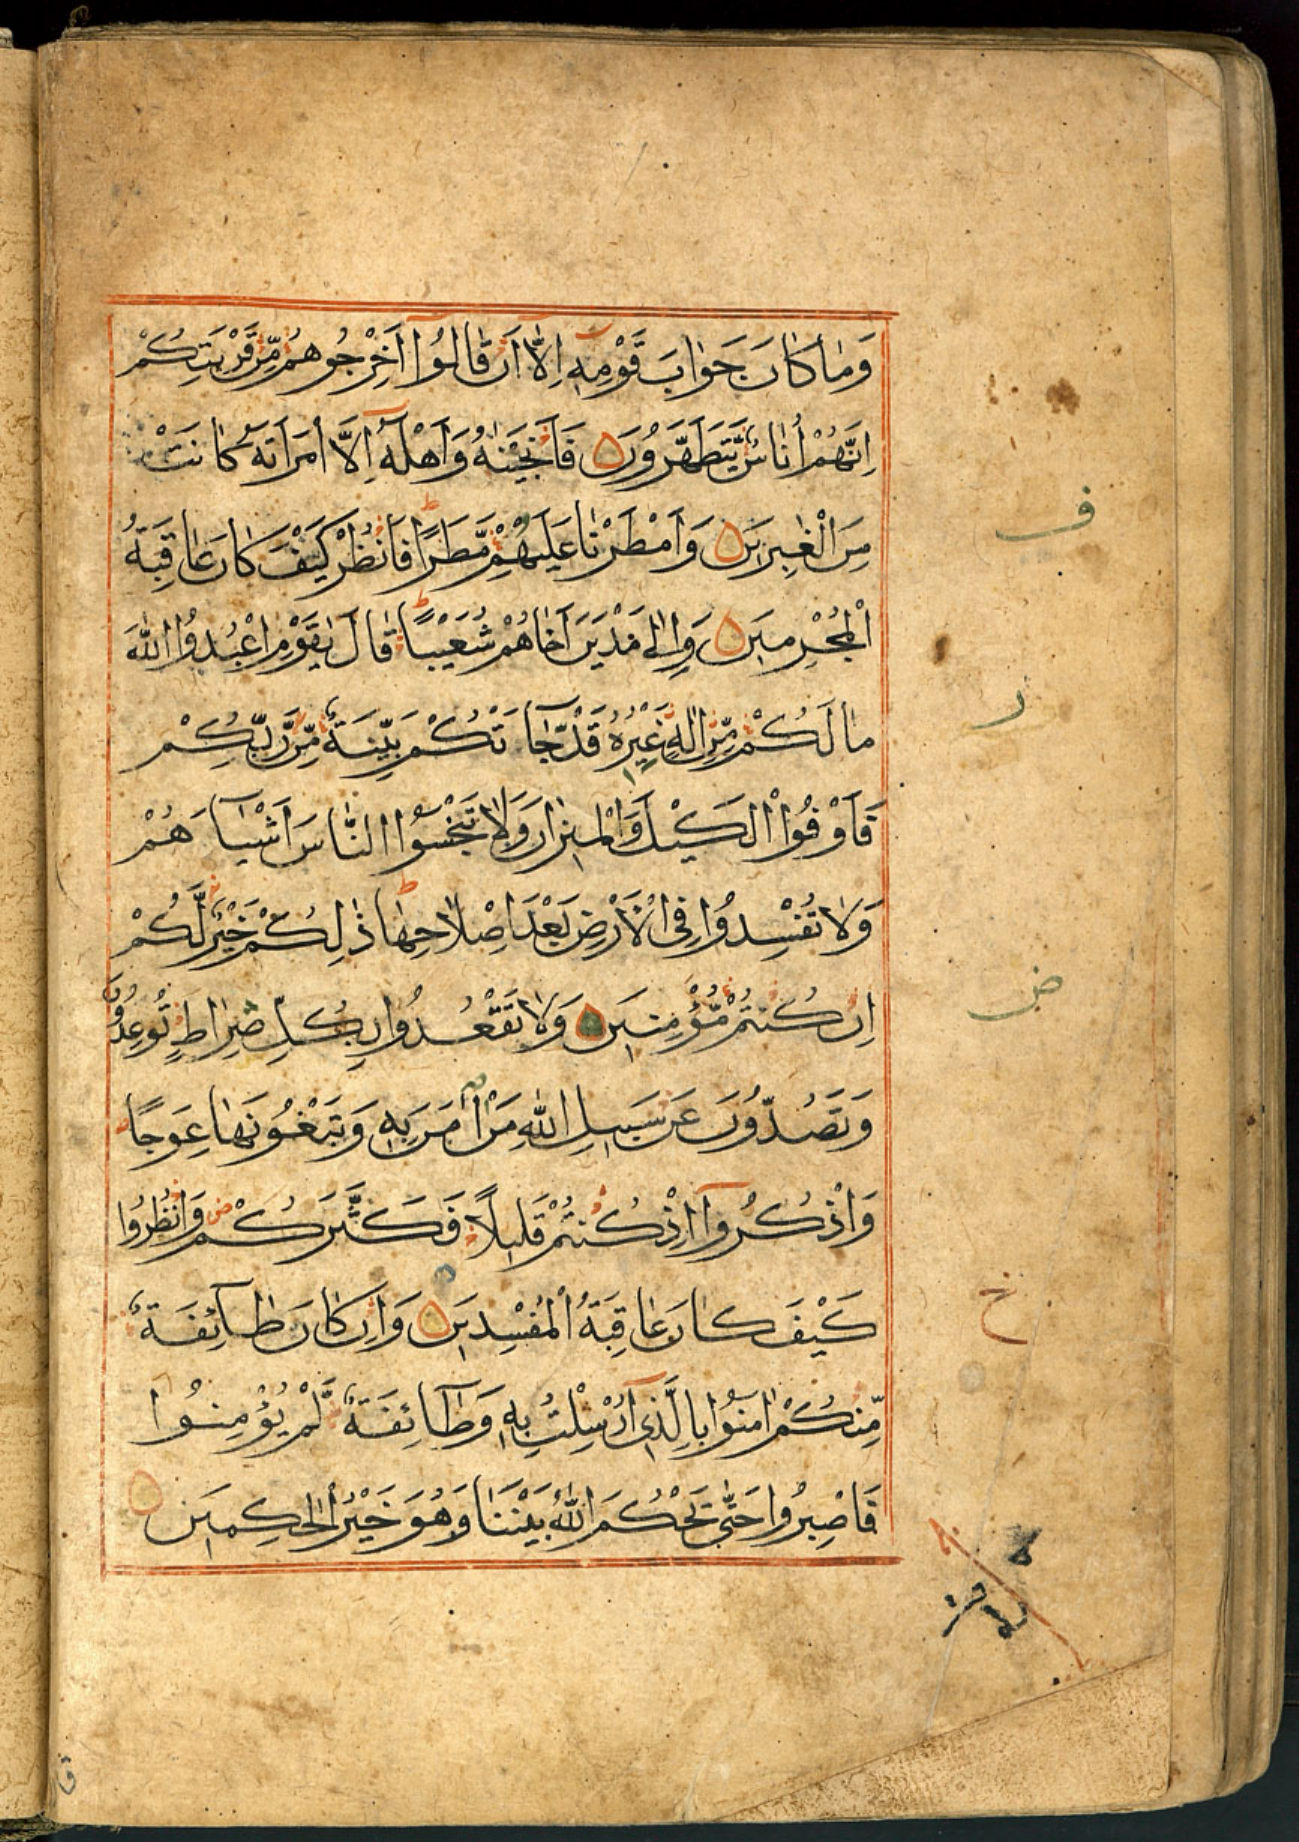 وَمَا كَانَ جَوَابَ قَوْمِهٖ اِلَّا اَنْ قَالُوْا اَخْرِجُوهُمْ مِّنْ قَرْيَتِكُمْ
اِنَّهُمْ اُنَاسٌ يَّتَطَهَّرُوْنَ فَاَنْجَيْنٰهُ وَاَهْلَهٗ اِلَّا امْرَاَتَهٗ كَانَتْ
مِنَ الْغٰبِرِيْنَ وَاَمْطَرْنَا عَلَيْهِمْ مَّطَرًا فَانْظُرْ كَيْفَ كَانَ عَاقِبَةُ
الْمُجْرِمِيْنَ وَاِلٰى مَدْيَنَ اَخَاهُمْ شُعَيْبًا قَالَ يٰقَوْمِ اعْبُدُوا اللّٰهَ
مَا لَكُمْ مِّنْ اِلٰهٍ غَيْرُهٗ قَدْ جَآءَتْكُمْ بَيِّنَةٌ مِّنْ رَّبِّكُمْ
فَاَوْفُوا الْكَيْلَ وَالْمِيْزَانَ وَلَا تَبْخَسُوا النَّاسَ اَشْيَآءَهُمْ
وَلَا تُفْسِدُوْا فِى الْاَرْضِ بَعْدَ اِصْلَاحِهَا ذٰلِكُمْ خَيْرٌ لَّكُمْ
اِنْ كُنْتُمْ مُّؤْمِنِيْنَ وَلَا تَقْعُدُوْا بِكُلِّ صِرَاطٍ تُوْعِدُوْنَ
وَتَصُدُّوْنَ عَنْ سَبِيْلِ اللّٰهِ مَنْ اٰمَنَ بِهٖ وَتَبْغُوْنَهَا عِوَجًا
وَاذْكُرُوْآ اِذْ كُنْتُمْ قَلِيْلًا فَكَثَّرَكُمْ وَانْظُرُوْا
كَيْفَ كَانَ عَاقِبَةُ الْمُفْسِدِيْنَ وَاِنْ كَانَ طَآئِفَةٌ
مِّنْكُمْ اٰمَنُوْا بِالَّذِىْٓ اُرْسِلْتُ بِهٖ وَطَآئِفَةٌ لَّمْ يُؤْمِنُوْا
فَاصْبِرُوْا حَتّٰى يَحْكُمَ اللّٰهُ بَيْنَنَا وَهُوَ خَيْرُ الْحٰكِمِيْنَ
ف
ر
ض
خ